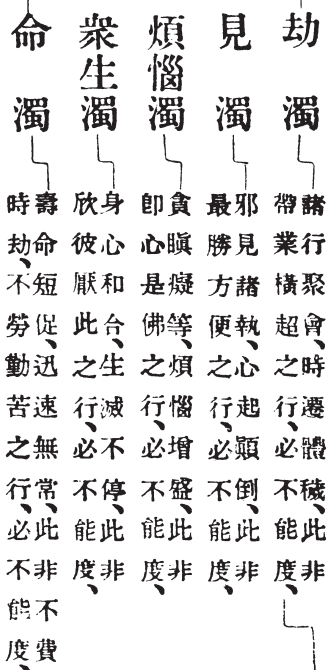 劫濁
諸行聚會、時遷體穢、此非
帶業橫超之行、必不能度、
見濁
邪見諸執、心起顛倒、此非
最勝方便之行、必不能度、
煩惱濁
貪瞋癡等、煩惱增盛、此非
卽心是佛之行、必不能度、
衆生濁
身心和合、生滅不停、此非
欣彼厭此之行、必不能度、
命濁
壽命短促、迅速無常、此非不費
時劫、不勞勤苦之行、必不能度、